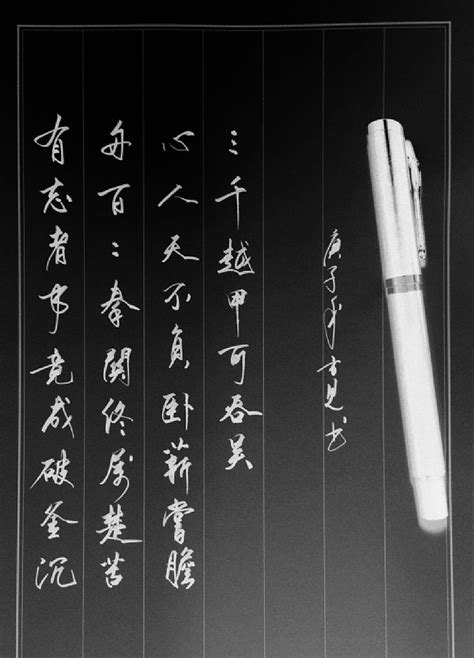 有志者事竟成破釜沉
舟百二秦關终属楚苦
心人天不負卧薪嘗膽
三千越甲可吞吴
庚子年书